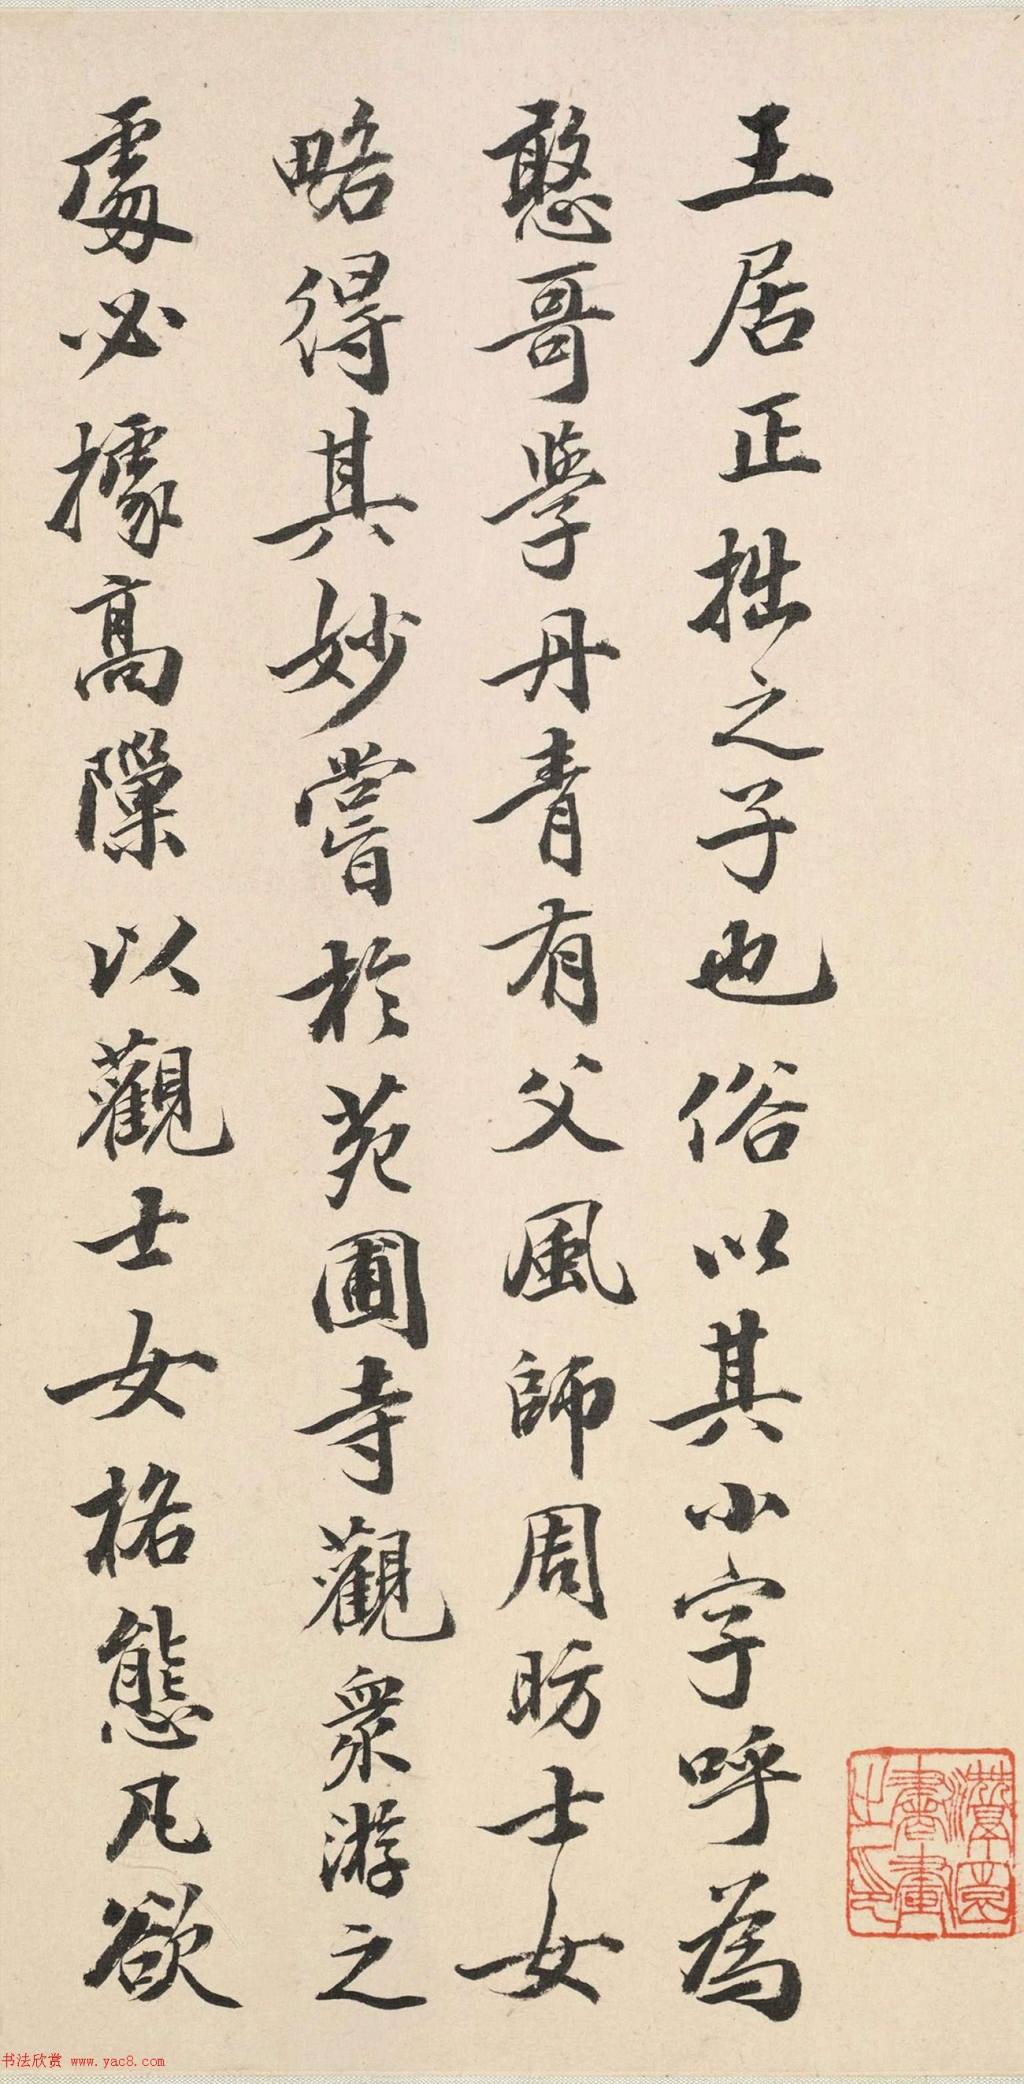 王居正拙之子也俗以其小字呼為
憨哥學丹青有父風師周昉士女
略得其妙嘗於苑圃寺觀眾游之
處必據高隟以觀士女格態凡欲
书法欣赏 www.yac8.com